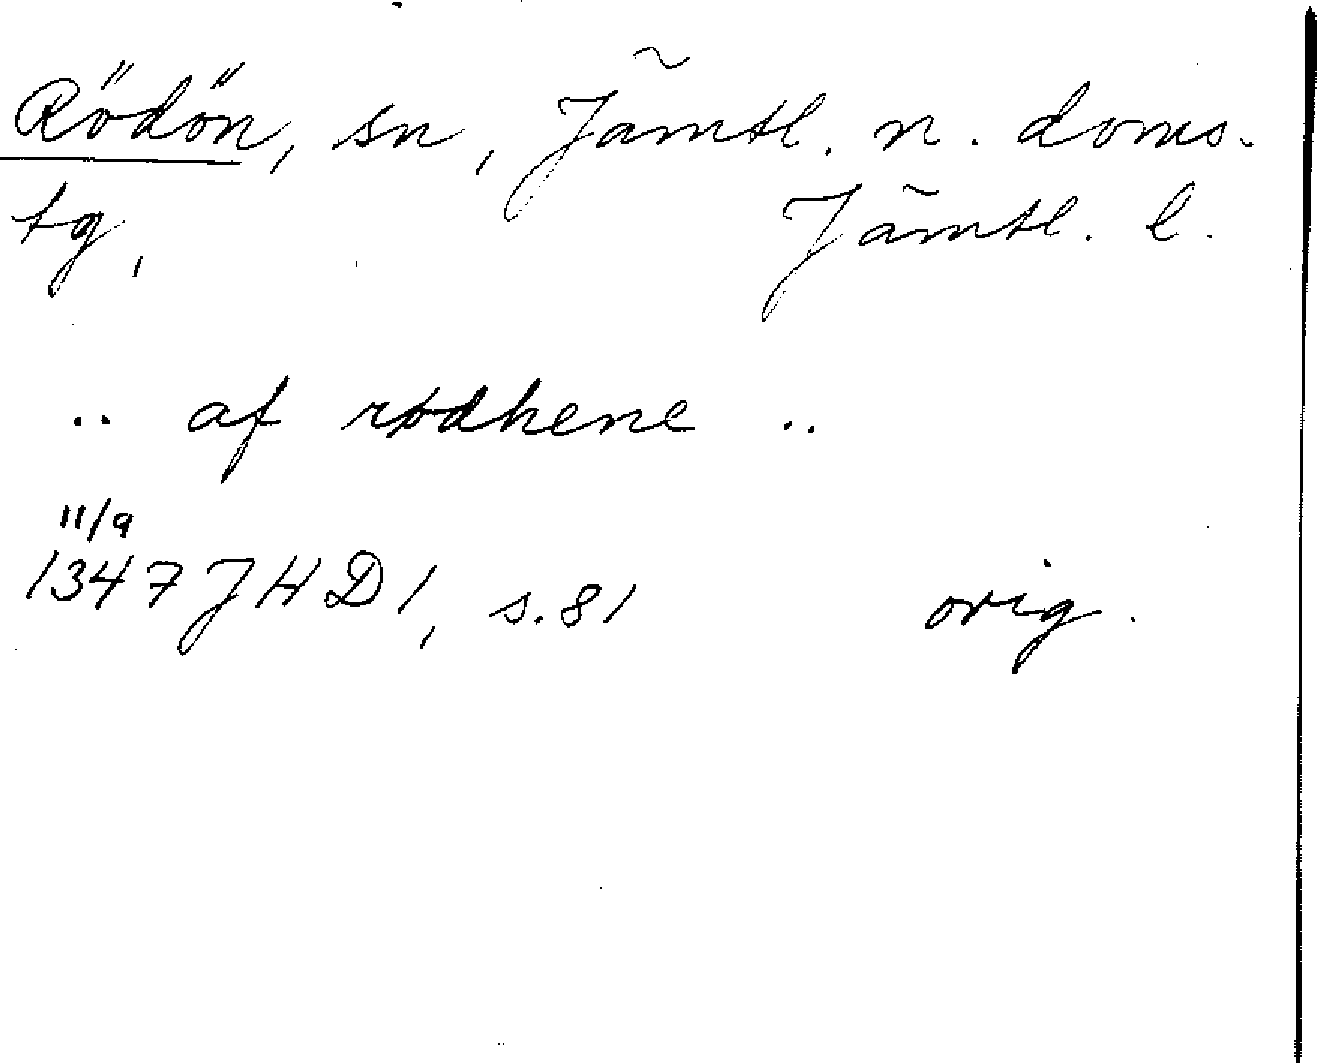 Rödön, sn, Jämtl. n. doms-
tg, Jämtl. l.
.. af rødhene ..
11/9
1347 JHD 1, s. 81 orig.